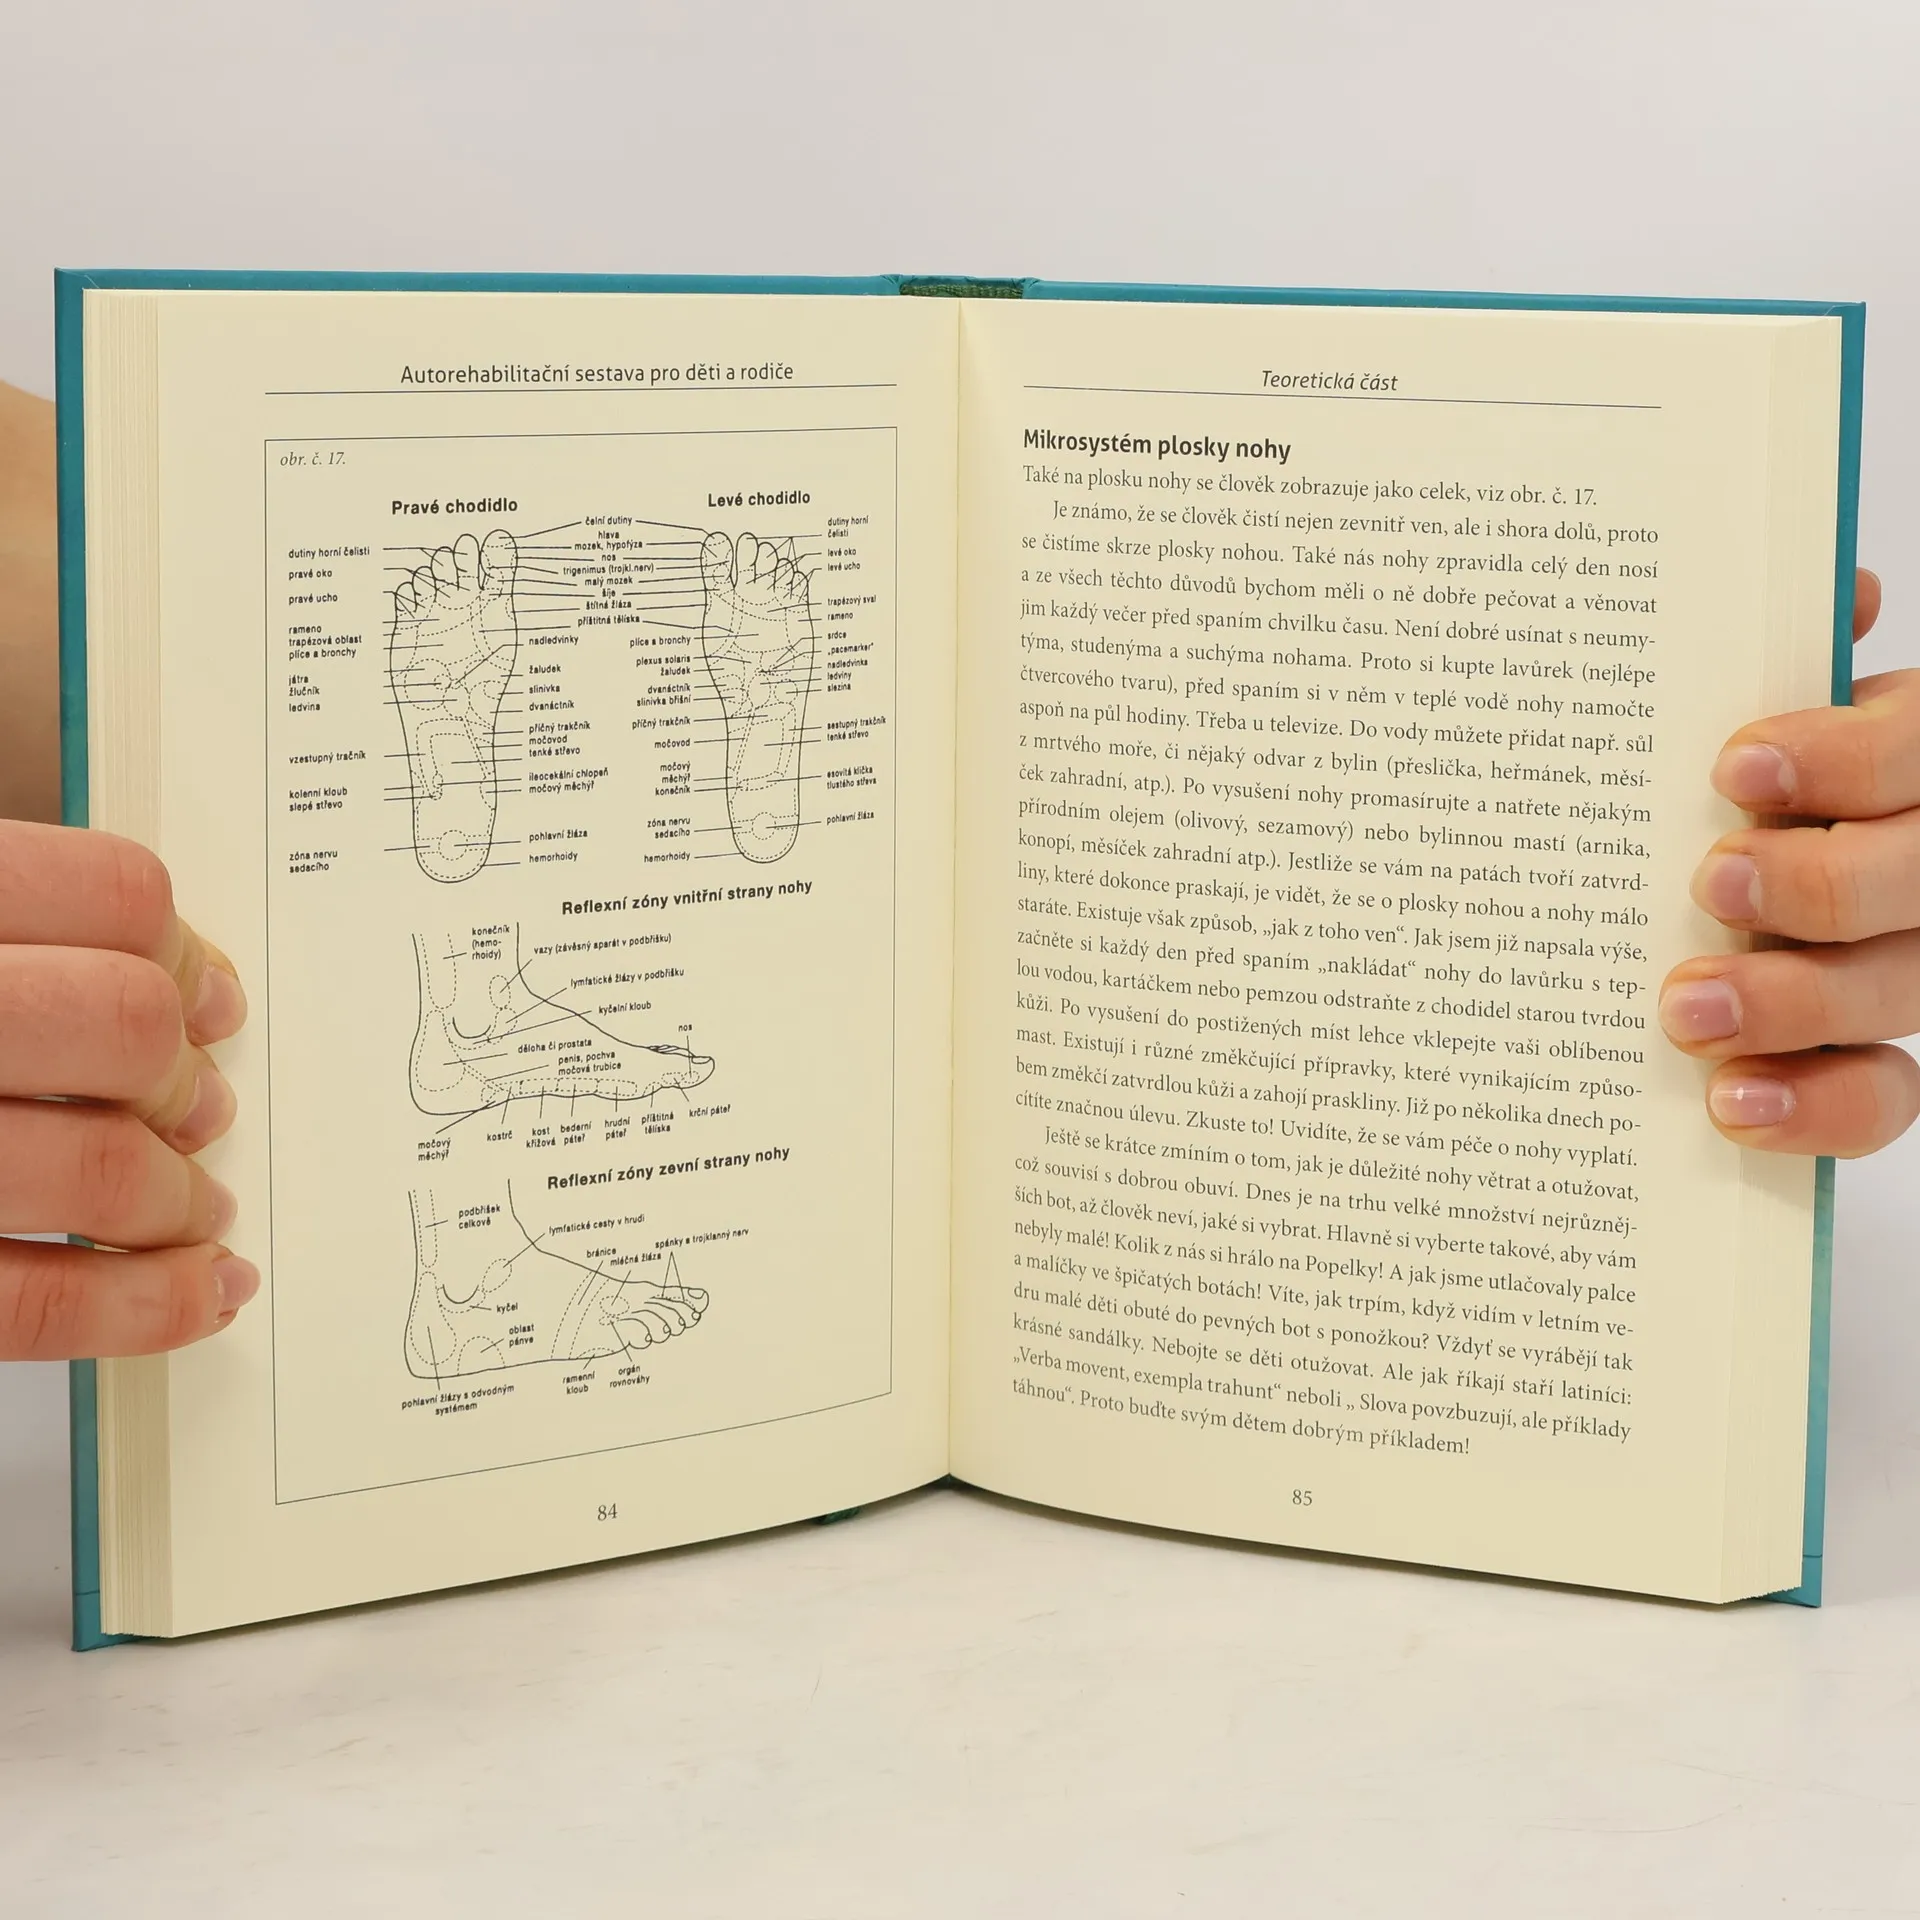 Autorehabilitační sestava pro děti a rodiče
obr. č. 17.
Pravé chodidlo
Levé chodidlo
dutiny horní čelisti
pravé oko
pravé ucho
rameno
trapézová oblast
plíce a bronchy
játra
žlučník
ledvina
vzestupný tračník
kolenní kloub
slepé střevo
zóna nervu
sedacího
čelní dutiny
hlava
mozek, hypofýza
nos
trigenimus (trojkl.nerv)
malý mozek
šíje
štítná žláza
příštitná tělíska
nadledvinky
žaludek
slinivka
dvanáctník
příčný trakčník
močovod
tenké střevo
ileocekální chlopeň
močový měchýř
pohlavní žláza
hemorhoidy
plíce a bronchy
plexus solaris
žaludek
dvanáctník
slinivka břišní
příčný trakčník
močovod
močový
měchýř
konečník
zóna nervu
sedacího
hemorhoidy
dutiny horní
čelisti
levé oko
levé ucho
trapézový sval
rameno
srdce
„pacemarker"
nadledvinka
ledviny
slezina
sestupný trakčník
tenké střevo
esovitá klička
tlustého střeva
pohlavní žláza
Reflexní zóny vnitřní strany nohy
konečník
(hemo-
rhoidy)
vazy (závěsný aparát v podbřišku)
lymfatické žlázy v podbřišku
kyčelní kloub
nos
děloha či prostata
penis, pochva
močová trubice
močový
měchýř
kostrč
kost
křížová
bederní
páteř
hrudní
páteř
příštitná
tělíska
krční páteř
Reflexní zóny zevní strany nohy
podbřišek
celkově
lymfatické cesty v hrudi
bránice
mléčná žláza
spánky a trojklanný nerv
kyčel
oblast
pánve
pohlavní žlázy s odvodným
systémem
ramenní
kloub
orgán
rovnováhy
84
Teoretická část
Mikrosystém plosky nohy
Také na plosku nohy se člověk zobrazuje jako celek, viz obr. č. 17.
Je známo, že se člověk čistí nejen zevnitř ven, ale i shora dolů, proto
se čistíme skrze plosky nohou. Také nás nohy zpravidla celý den nosí
a ze všech těchto důvodů bychom měli o ně dobře pečovat a věnovat
jim každý večer před spaním chvilku času. Není dobré usínat s neumy-
týma, studenýma a suchýma nohama. Proto si kupte lavůrek (nejlépe
čtvercového tvaru), před spaním si v něm v teplé vodě nohy namočte
aspoň na půl hodiny. Třeba u televize. Do vody můžete přidat např. sůl
z mrtvého moře, či nějaký odvar z bylin (přeslička, heřmánek, měsí-
ček zahradní, atp.). Po vysušení nohy promasírujte a natřete nějakým
přírodním olejem (olivový, sezamový) nebo bylinnou mastí (arnika,
konopí, měsíček zahradní atp.). Jestliže se vám na patách tvoří zatvrd-
liny, které dokonce praskají, je vidět, že se o plosky nohou a nohy málo
staráte. Existuje však způsob, „jak z toho ven“. Jak jsem již napsala výše,
začněte si každý den před spaním „nakládat“ nohy do lavůrku s tep-
lou vodou, kartáčkem nebo pemzou odstraňte z chodidel starou tvrdou
kůži. Po vysušení do postižených míst lehce vklepejte vaši oblíbenou
mast. Existují i různé změkčující přípravky, které vynikajícím způso-
bem změkčí zatvrdlou kůži a zahojí praskliny. Již po několika dnech po-
cítíte značnou úlevu. Zkuste to! Uvidíte, že se vám péče o nohy vyplatí.
Ještě se krátce zmíním o tom, jak je důležité nohy větrat a otužovat,
což souvisí s dobrou obuví. Dnes je na trhu velké množství nejrůzněj-
ších bot, až člověk neví, jaké si vybrat. Hlavně si vyberte takové, aby vám
nebyly malé! Kolik z nás si hrálo na Popelky! A jak jsme utlačovaly palce
a malíčky ve špičatých botách! Víte, jak trpím, když vidím v letním ve-
dru malé děti obuté do pevných bot s ponožkou? Vždyť se vyrábějí tak
krásné sandálky. Nebojte se děti otužovat. Ale jak říkají staří latiníci:
„Verba movent, exempla trahunt“ neboli „ Slova povzbuzují, ale příklady
táhnou“. Proto buďte svým dětem dobrým příkladem!
85